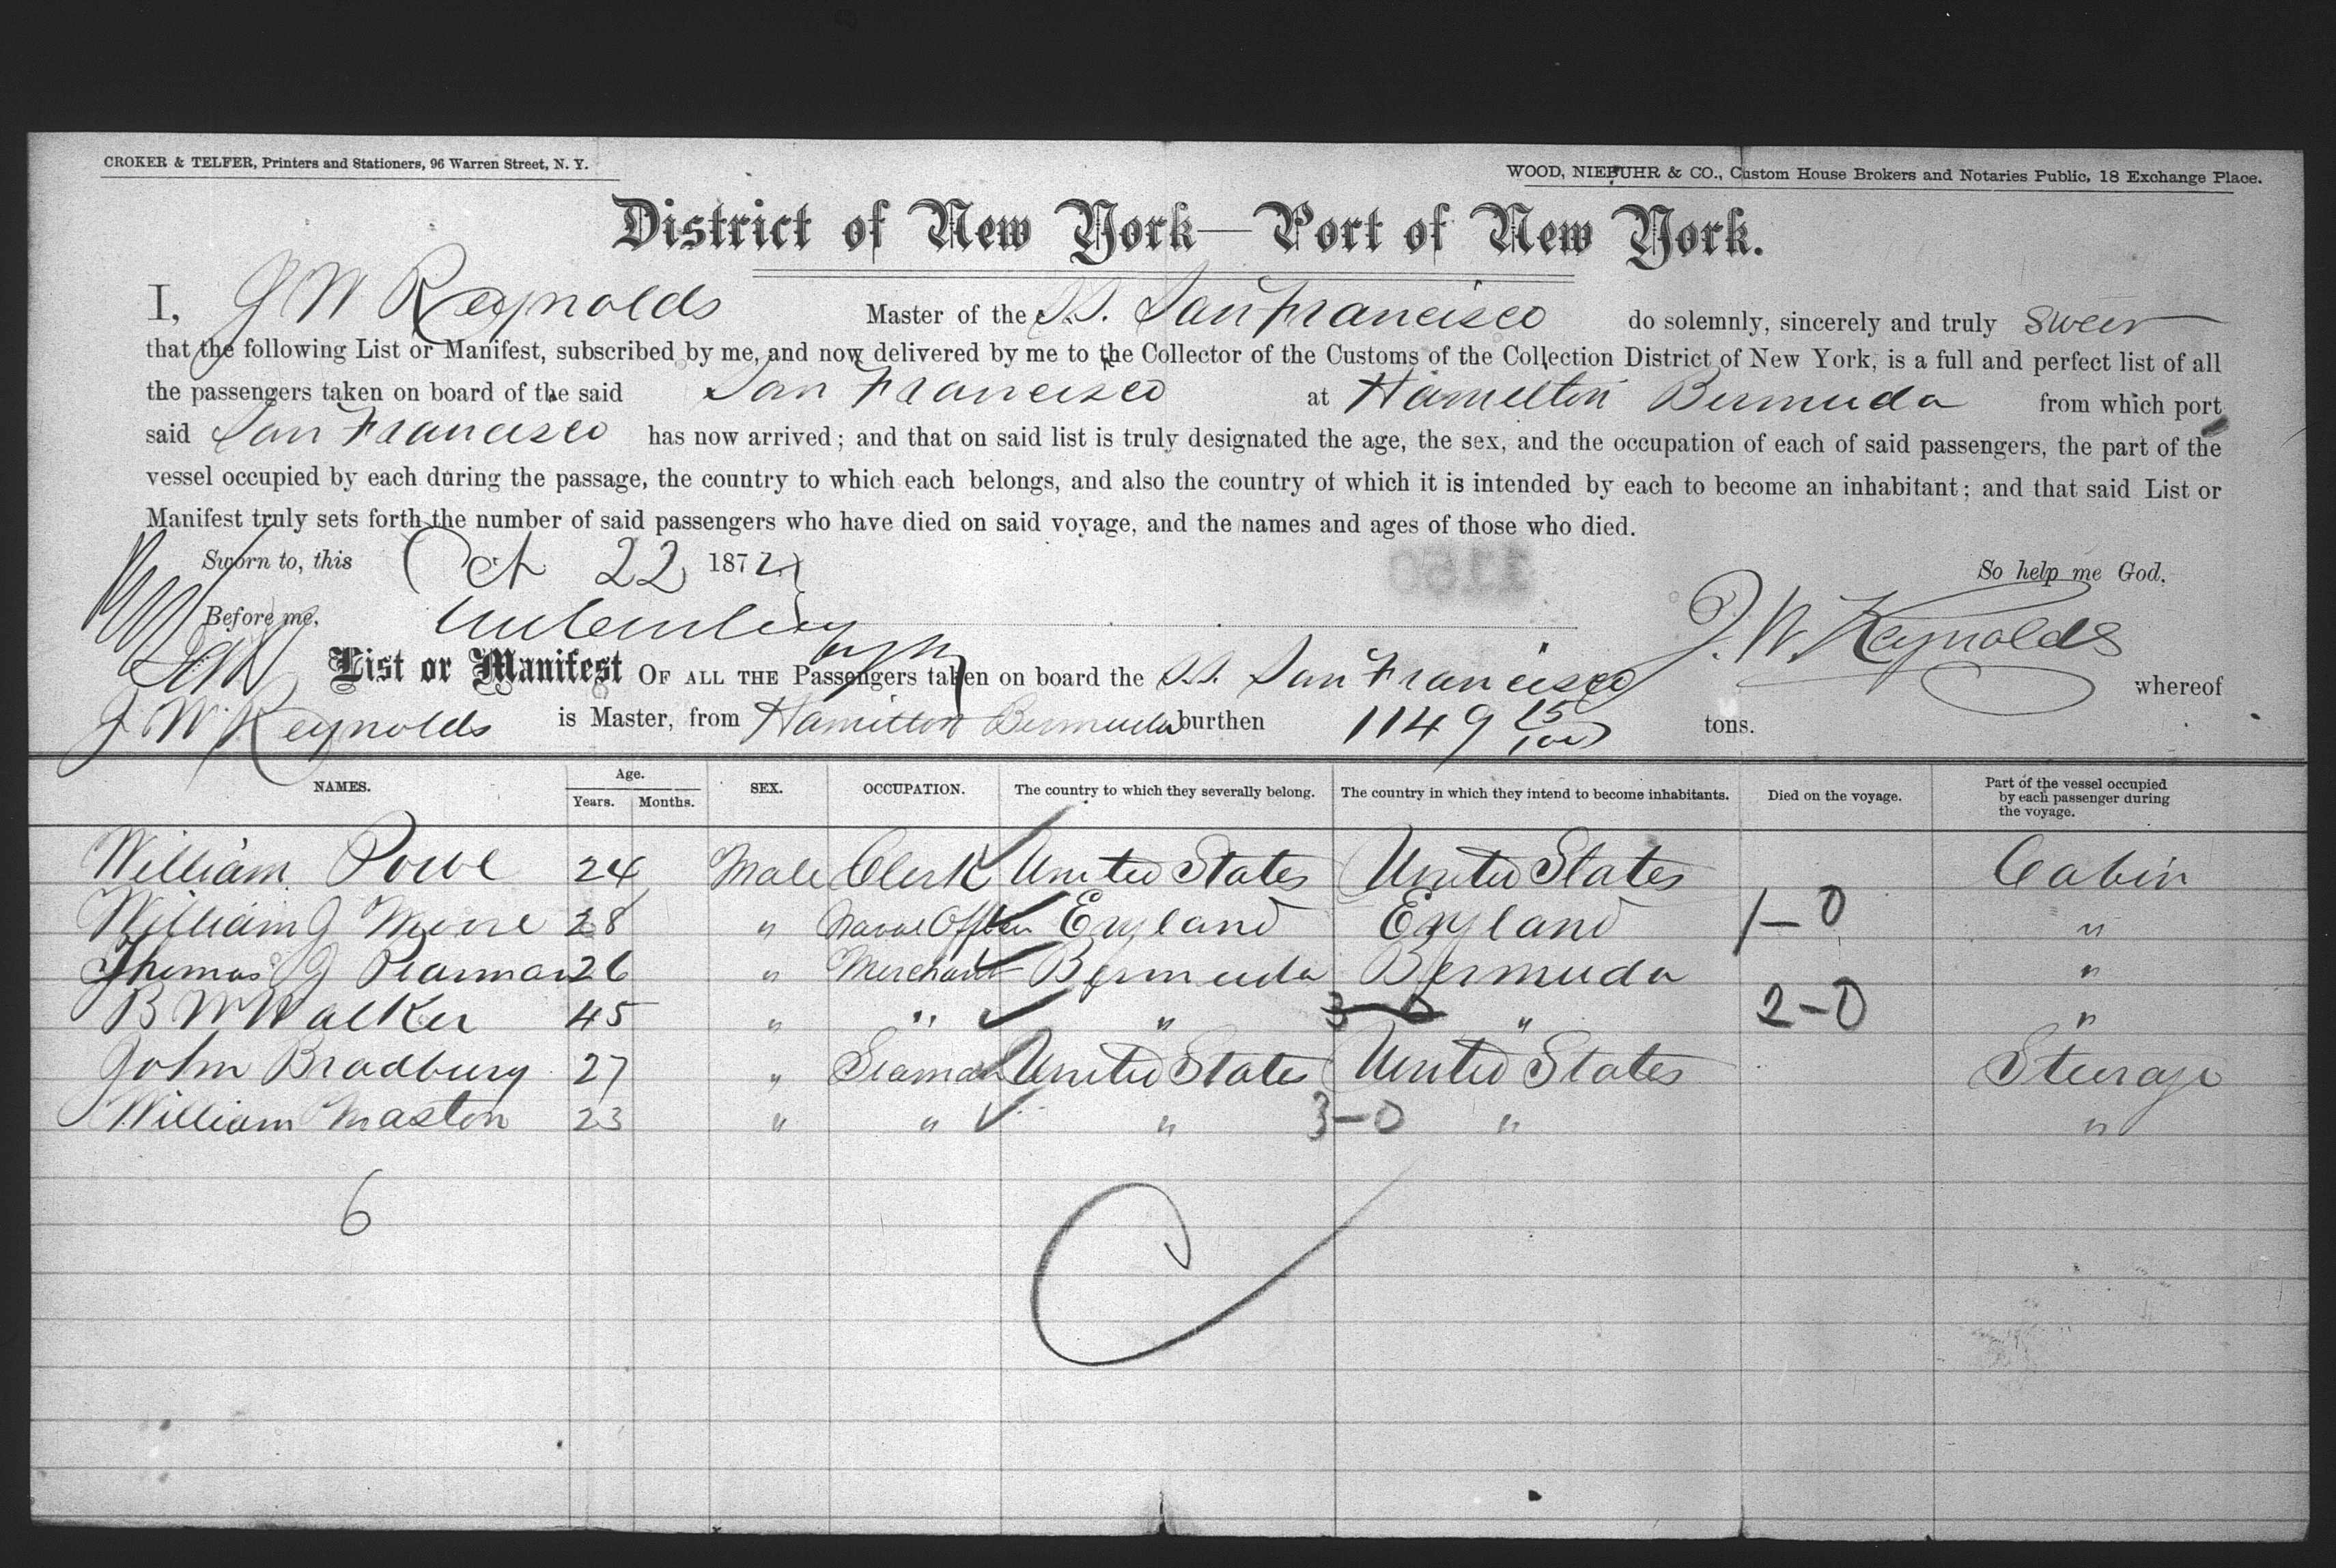 CROKER & TELFER, Printers and Stationers, 96 Warren Street, N. Y.
WOOD, NIEBUHR & CO., Custom House Brokers and Notaries Public, 18 Exchange Place.
District of New York—Port of New York.
I, J W Reynolds Master of the S.S. San Francisco do solemnly, sincerely and truly swear
that the following List or Manifest, subscribed by me, and now delivered by me to the Collector of the Customs of the Collection District of New York, is a full and perfect list of all
the passengers taken on board of the said San Francisco at Hamilton Bermuda from which port
said San Francisco has now arrived; and that on said list is truly designated the age, the sex, and the occupation of each of said passengers, the part of the
vessel occupied by each during the passage, the country to which each belongs, and also the country of which it is intended by each to become an inhabitant; and that said List or
Manifest truly sets forth the number of said passengers who have died on said voyage, and the names and ages of those who died.
Sworn to, this Oct 22 1872 1150 So help me God,
Before me, J. W. Reynolds
List or Manifest OF ALL THE Passengers taken on board the S.S. San Francisco whereof
J. W. Reynolds is Master, from Hamilton Bermuda burthen 1149 15/100 tons.
NAMES. Age. Years. Months. SEX. OCCUPATION. The country to which they severally belong. The country in which they intend to become inhabitants. Died on the voyage. Part of the vessel occupied by each passenger during the voyage.
William Powe 24 Male Clerk United States United States Cabin
William J Moore 28 " Naval Officer England England 1-0 "
Thomas J Pearman 26 " Merchant Bermuda Bermuda "
B W Walker 45 " " " 3-0 " 2-0 "
John Bradbury 27 " Seaman United States United States Steerage
William Maston 23 " " " 3-0 " "
6